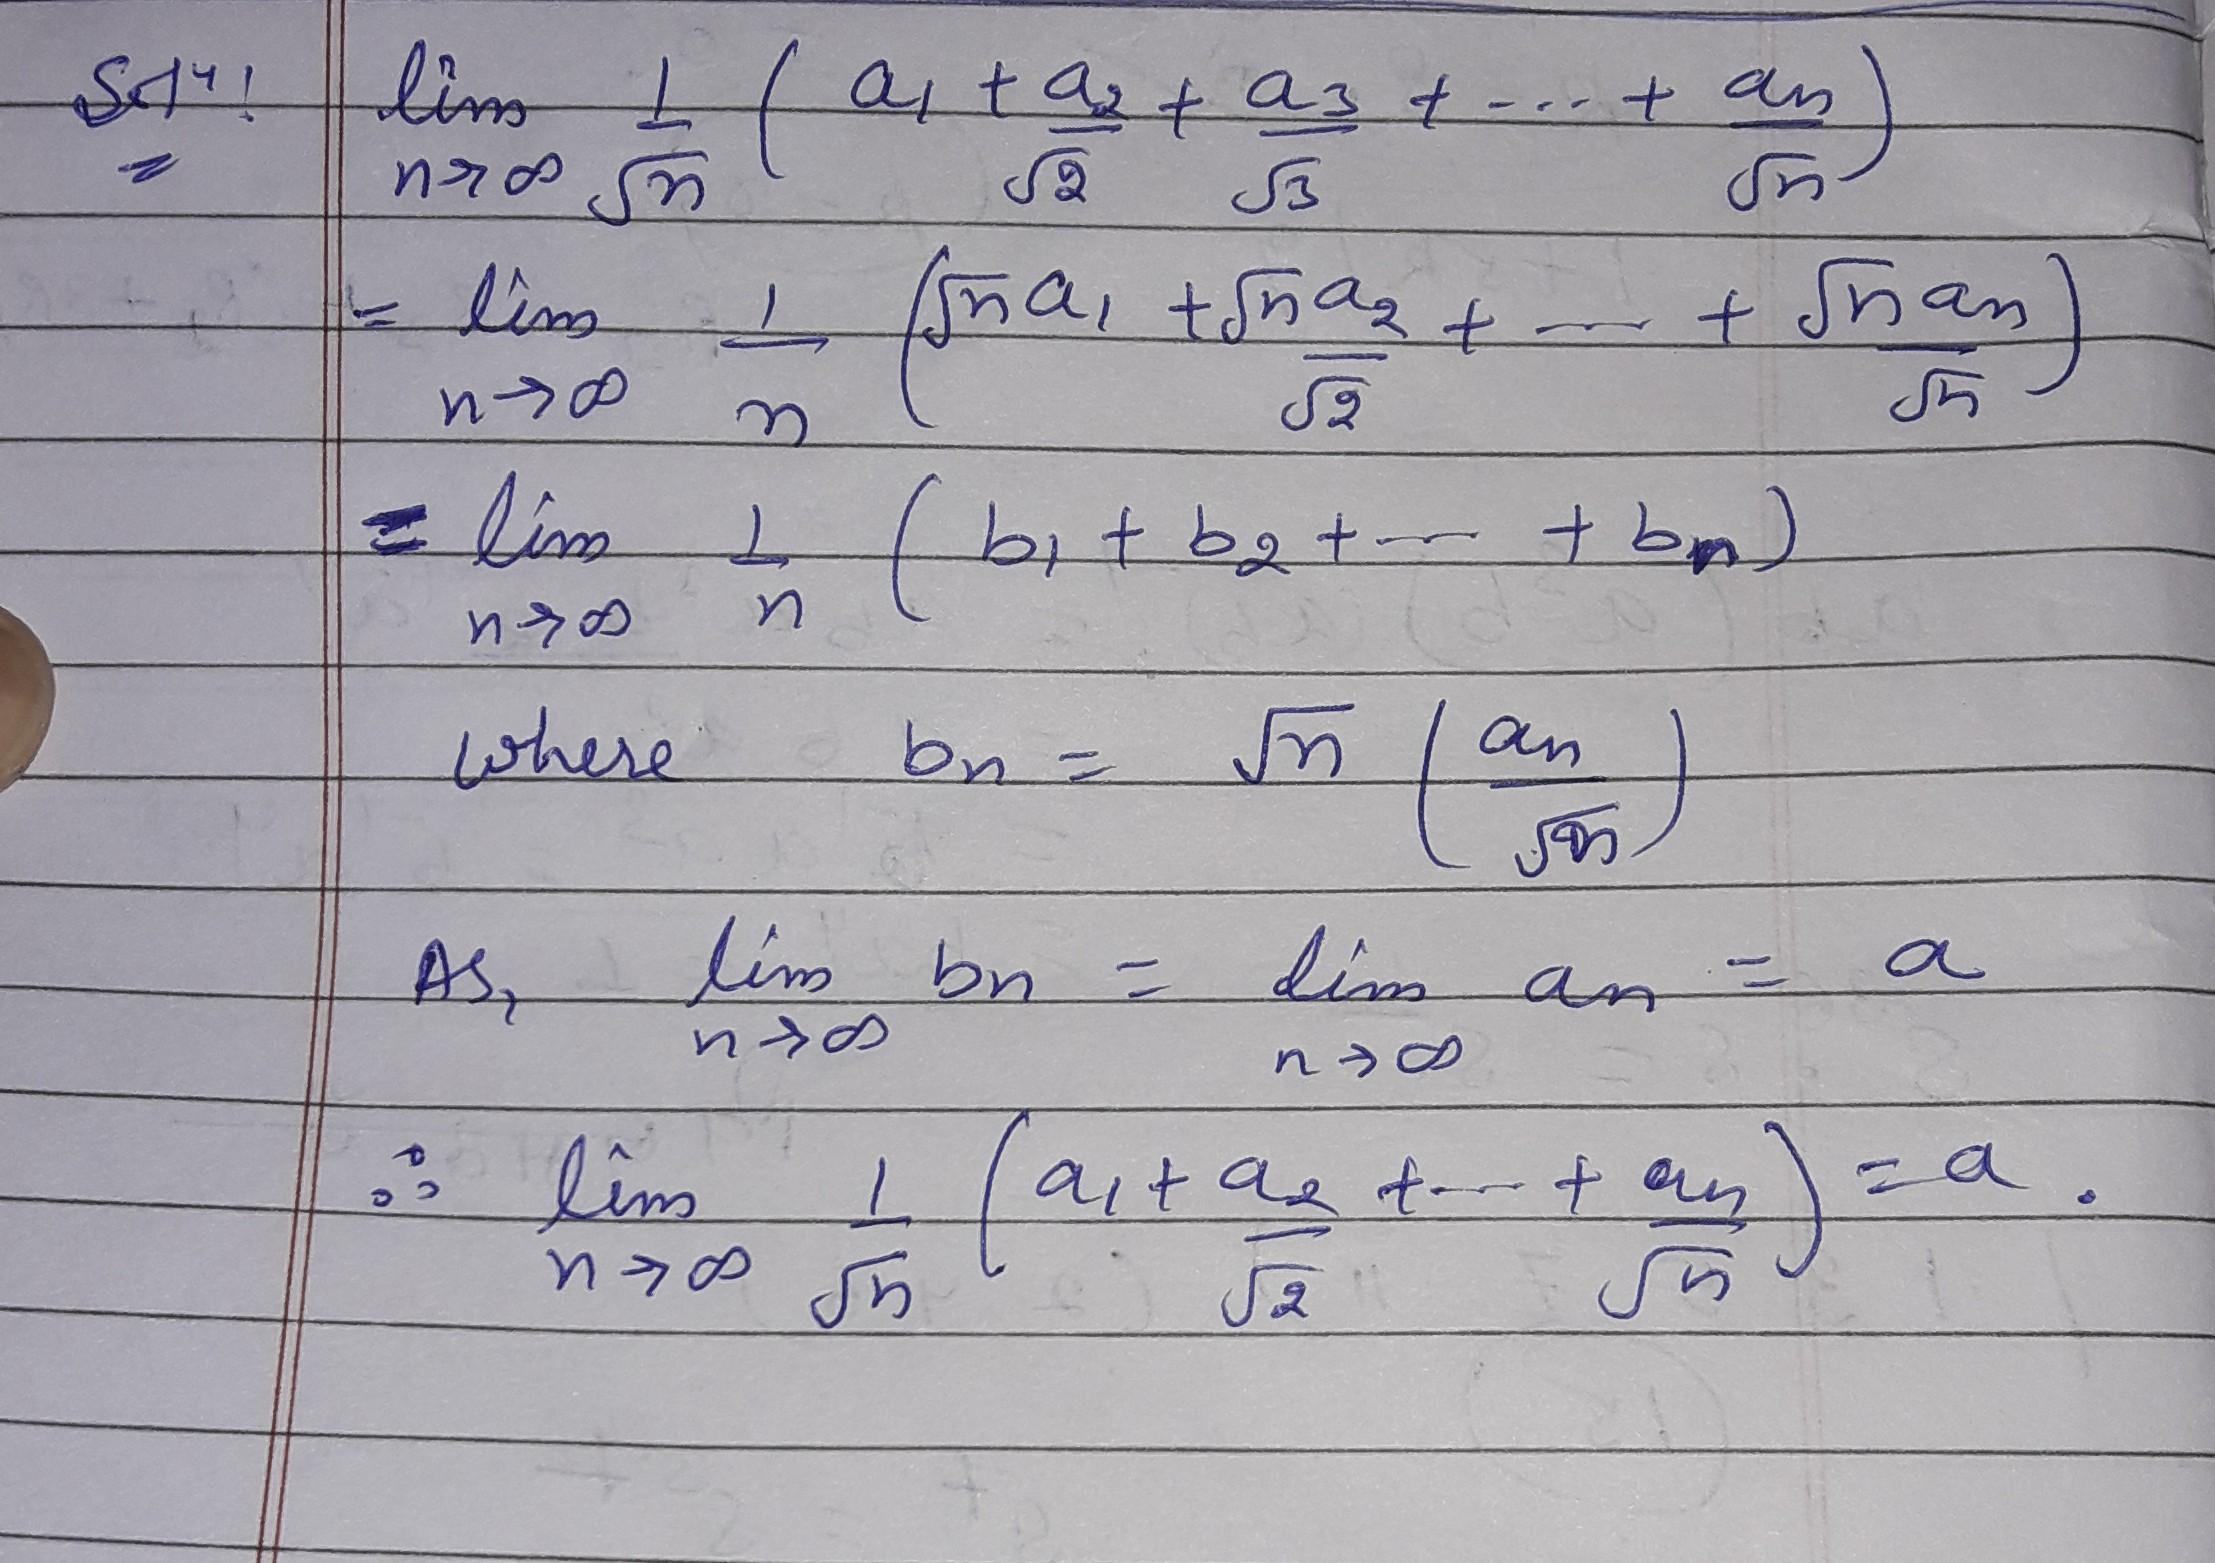 Soln! lim n→∞ 1/√n ( a1 + a2/√2 + a3/√3 + --.. + an/√n )
= lim n→∞ 1/n ( √n a1 + √n a2/√2 + --- + √n an/√n )
= lim n→∞ 1/n ( b1 + b2 + --- + bn )
where bn = √n ( an/√n )
As, lim n→∞ bn = lim n→∞ an = a
∴ lim n→∞ 1/√n ( a1 + a2/√2 + --- + an/√n ) = a .